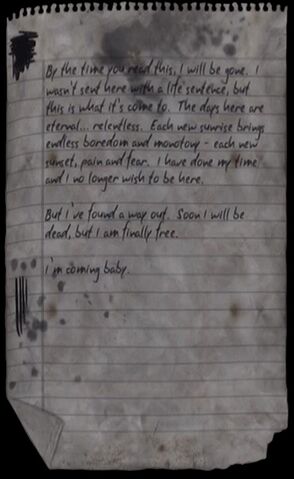 By the time you read this, I will be gone. I
wasn't sent here with a life sentence, but
this is what it's come to. The days here are
eternal... relentless. Each new sunrise brings
endless boredom and monotony - each new
sunset, pain and fear. I have done my time
and I no longer wish to be here.
But I've found a way out. Soon I will be
dead, but I am finally free.
I'm coming baby.